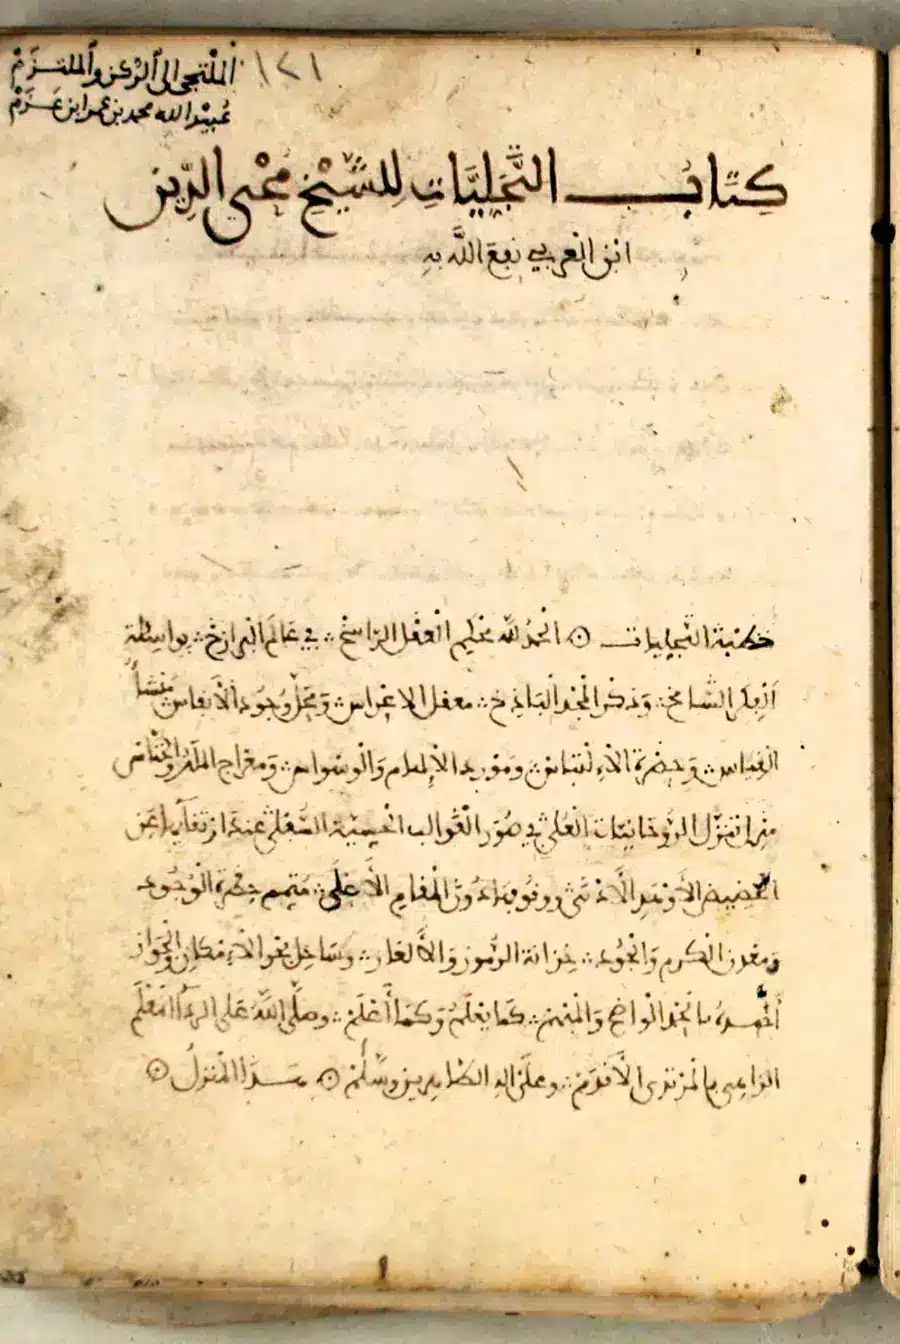 ١٢١
الملتجي الى الركن والملتزم
عبيد الله محمد بن عمر ابن عزم
كتاب التجليات للشيخ محيي الدين
ابن العربي نفع الله به
خطبة التجليات ۞ الحمد لله محكم العقل الراسخ في عالم البرازخ بواسطة
الفكر الشامخ وذكر المجد الباذخ معقل الاعراس ومجلى وجود الأنفاس منشأ
القياس وحضرة الالتباس ومورد الإلهام والوسواس ومعراج الملك والخناس
منزل تنزل الروحانيات العلى في صور القوالب الحسية السفلى عند ارتقائها عن
الحضيض الأوهد الأدنى ووقوفها دون المقام الأعلى متمم حضرة الوجود
ومعدن الكرم والجود خزانة الرموز والألغاز وساحل بحر الامكان والجواز
أحمده بالحمد الواضح والمبهم كما يعلم وكما أعلم وصلى الله على الرداء المعلم
الزاهي بالمرتدى الأقدم وعلى اله الطاهرين وسلم ۞ هذا المنزل ۞